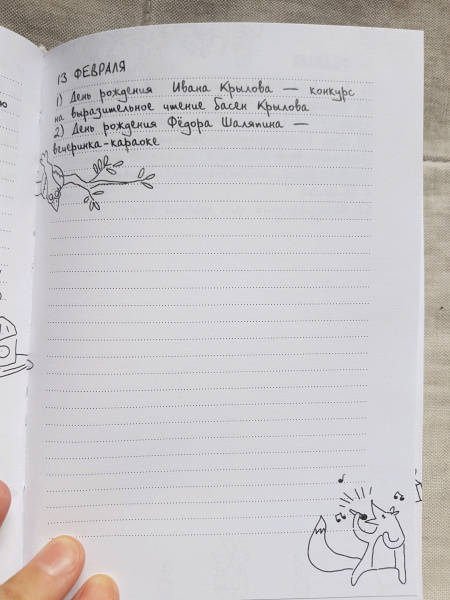 13 ФЕВРАЛЯ
1) День рождения Ивана Крылова — конкурс
на выразительное чтение басен Крылова
2) День рождения Фёдора Шаляпина —
вечеринка-караоке